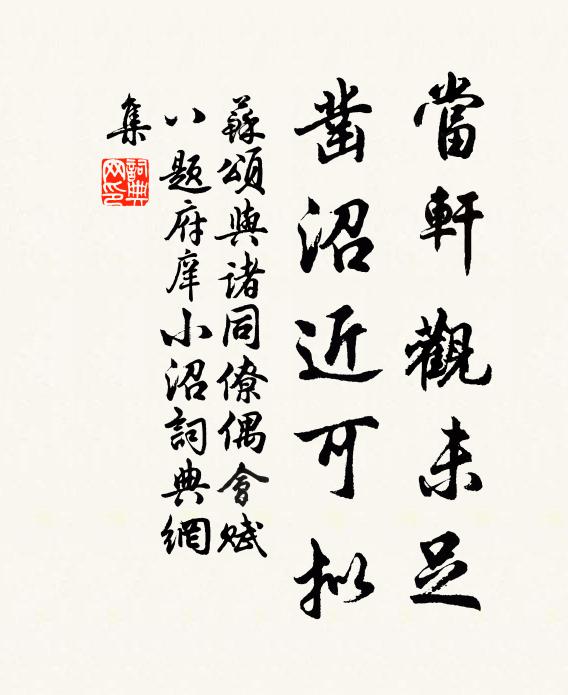 當軒觀未足
鑿沼近可擬
蘇頌與諸同僚偶會賦
八題府庠小沼詞典網
集
詞典
网印